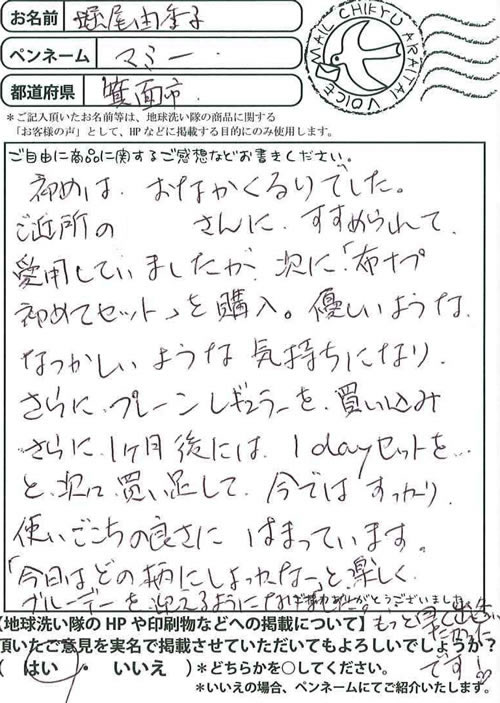 お名前 堀尾由季子
ペンネーム マミー
都道府県 箕面市.
MAIL CHIKYU ARAITAI VOICE
*ご記入頂いたお名前等は、地球洗い隊の商品に関する
「お客様の声」として、HPなどに掲載する目的にのみ使用します。
ご自由に商品に関するご感想などお書きください。
初めは、おなかくるりでした。
ご近所の さんに、すすめられて、
愛用していましたが、次に「布ナプ
初めてセット」を購入。優しいような、
なつかしいような気持ちになり、
さらに、プレーンレギュラーを、買い込み
さらに、1ヶ月後には、1dayセットを…
と、次に買い足して、今ではすっかり、
使いごこちの良さに はまっています。
「今日はどの柄にしよっかな〜」と楽しく
ブルーデーを迎えるように
ありがとうございました
もっと早く出会い
たかった
です!
【地球洗い隊のHPや印刷物などへの掲載について】
頂いたご意見を実名で掲載させていただいてもよろしいでしょうか?
( はい ・ いいえ )*どちらかを○してください。
*いいえの場合、ペンネームにてご紹介いたします。